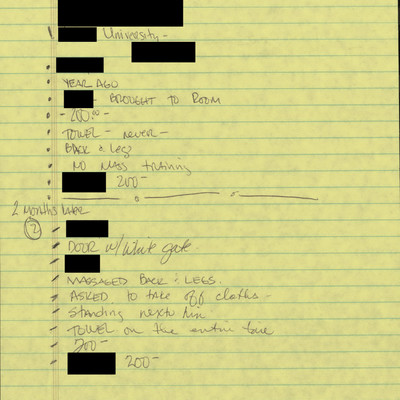 University -
YEAR AGO
- BROUGHT TO ROOM
- 200.00 -
TOWEL - never -
BACK & legs
NO MASS training
200 -
2 MONTHS later
2
DOOR w/ white gate.
MASSAGED BACK & LEGS.
ASKED to take off cloths -
Standing next to him
TOWEL on the entire time
200 -
200 -